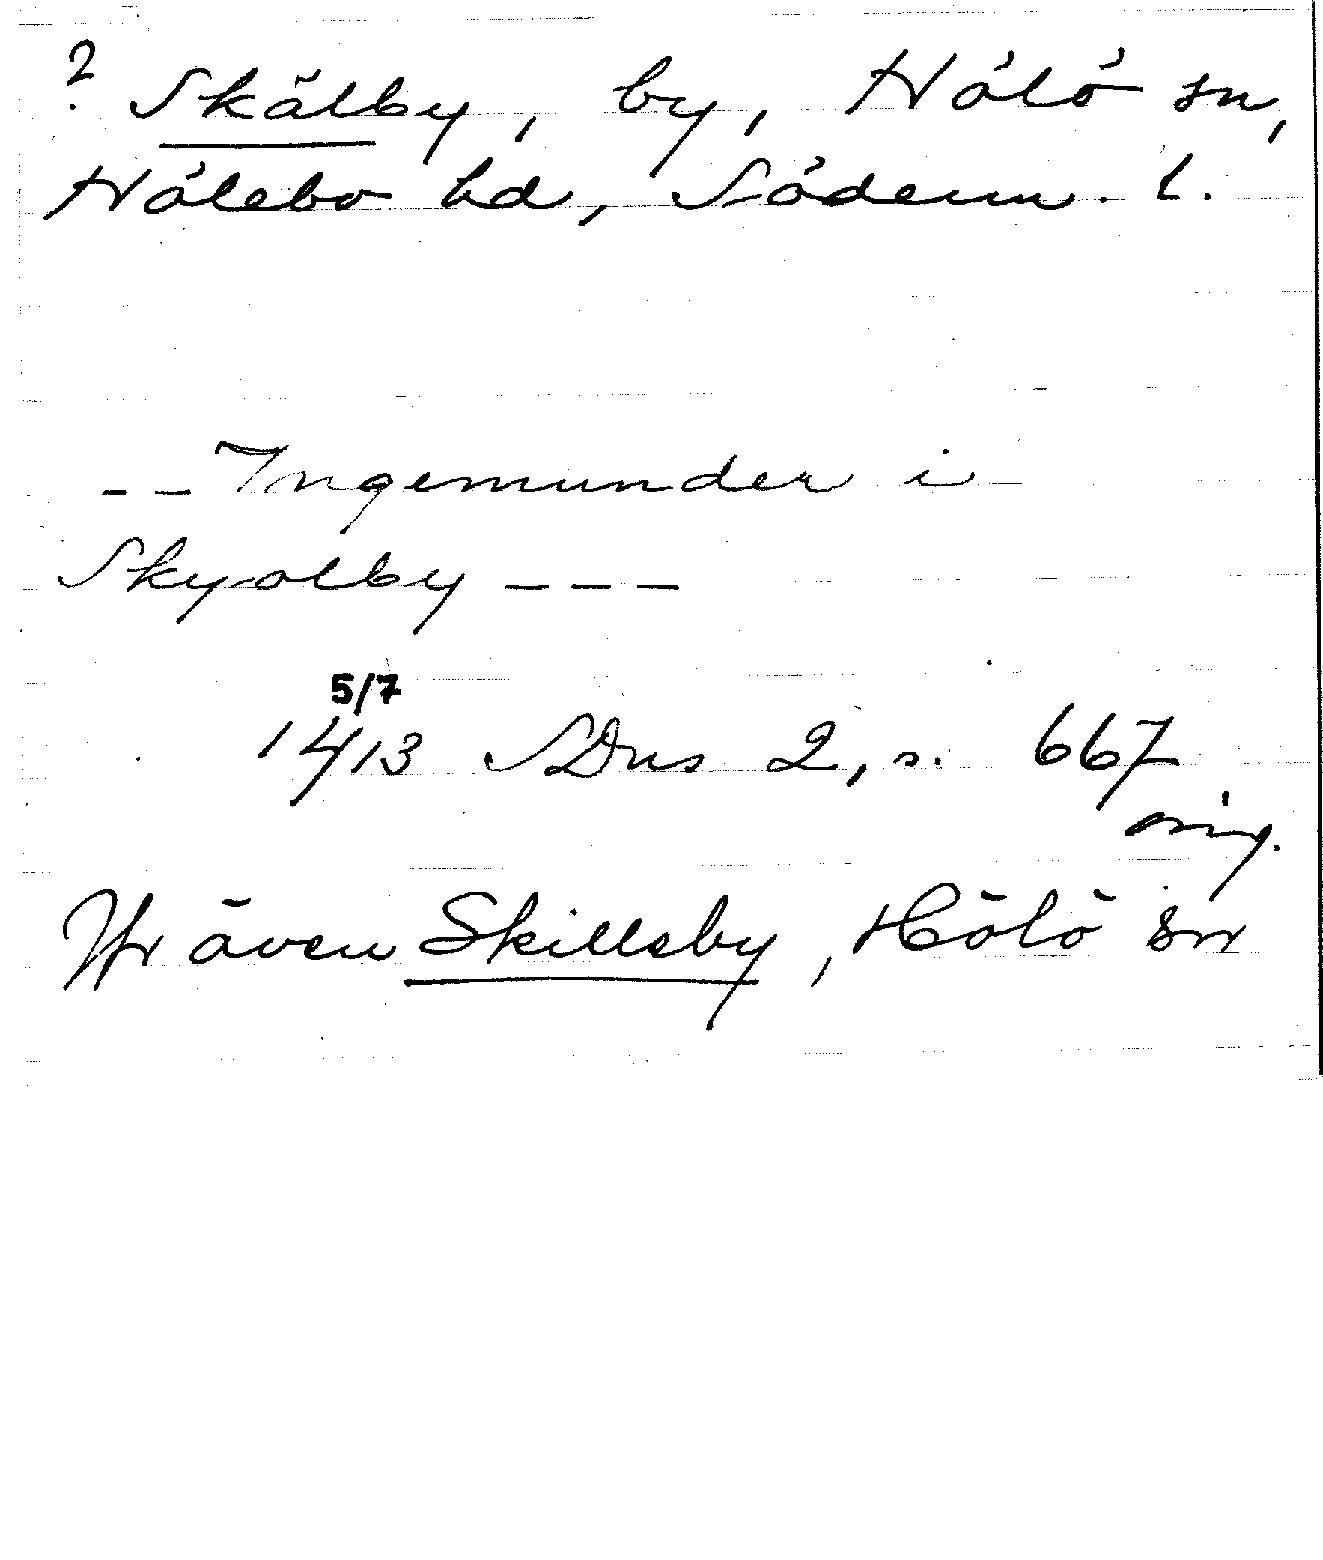 ? Skälby, by, Hölö sn,
Hölebo hd, Söderm. l.
-- Ingemunder i
Skyalby ---
5/7
1413 SDns 2, s. 667
orig.
Jfr även Skillsby, Hölö sn